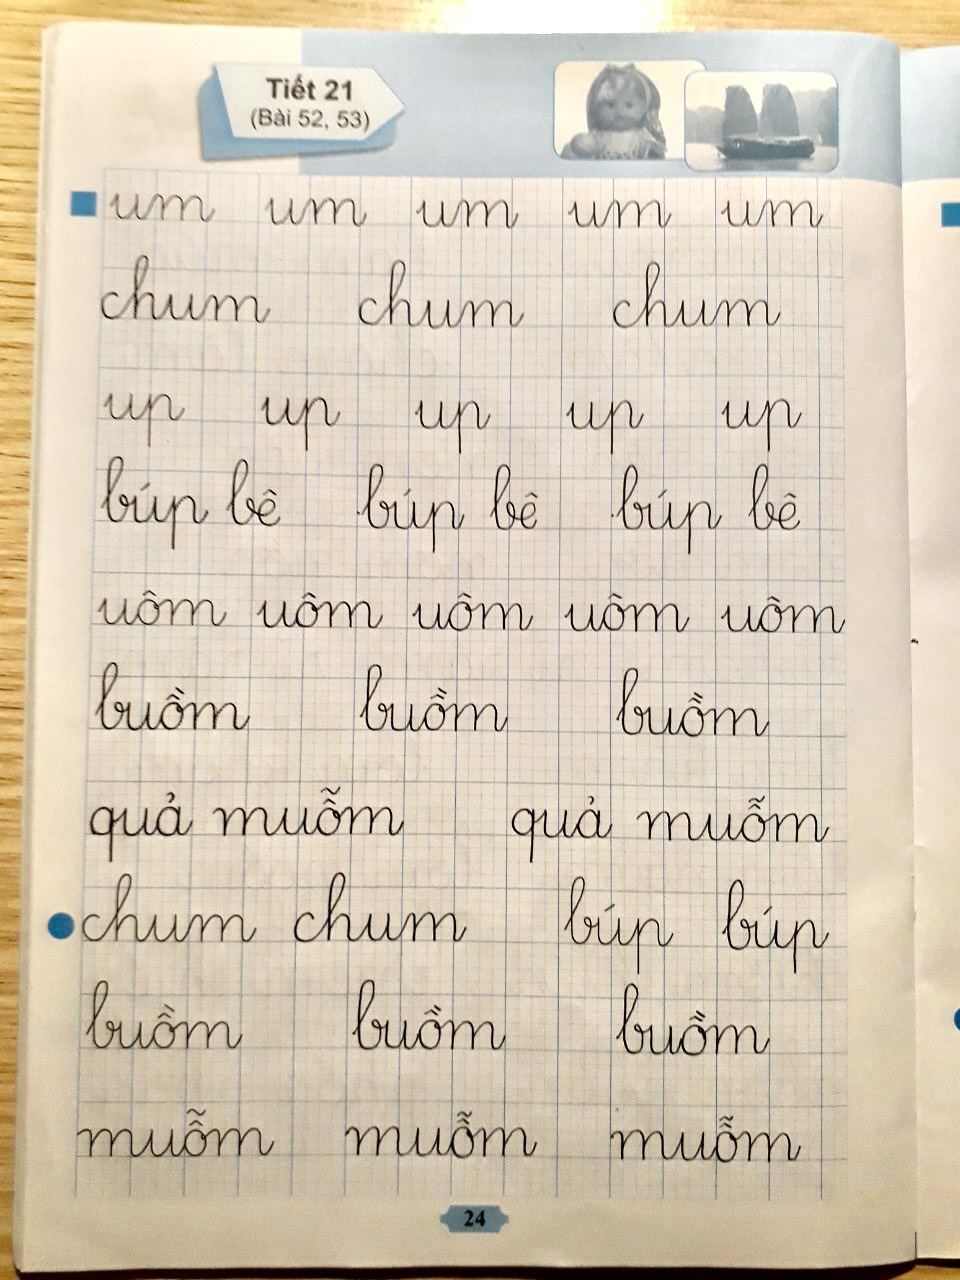 Tiết 21
(Bài 52, 53)
um um um um um
chum chum chum
up up up up up
búp bê búp bê búp bê
uôm uôm uôm uôm uôm
buồm buồm buồm
quả muỗm quả muỗm
chum chum búp búp
buồm buồm buồm
muỗm muỗm muỗm
24